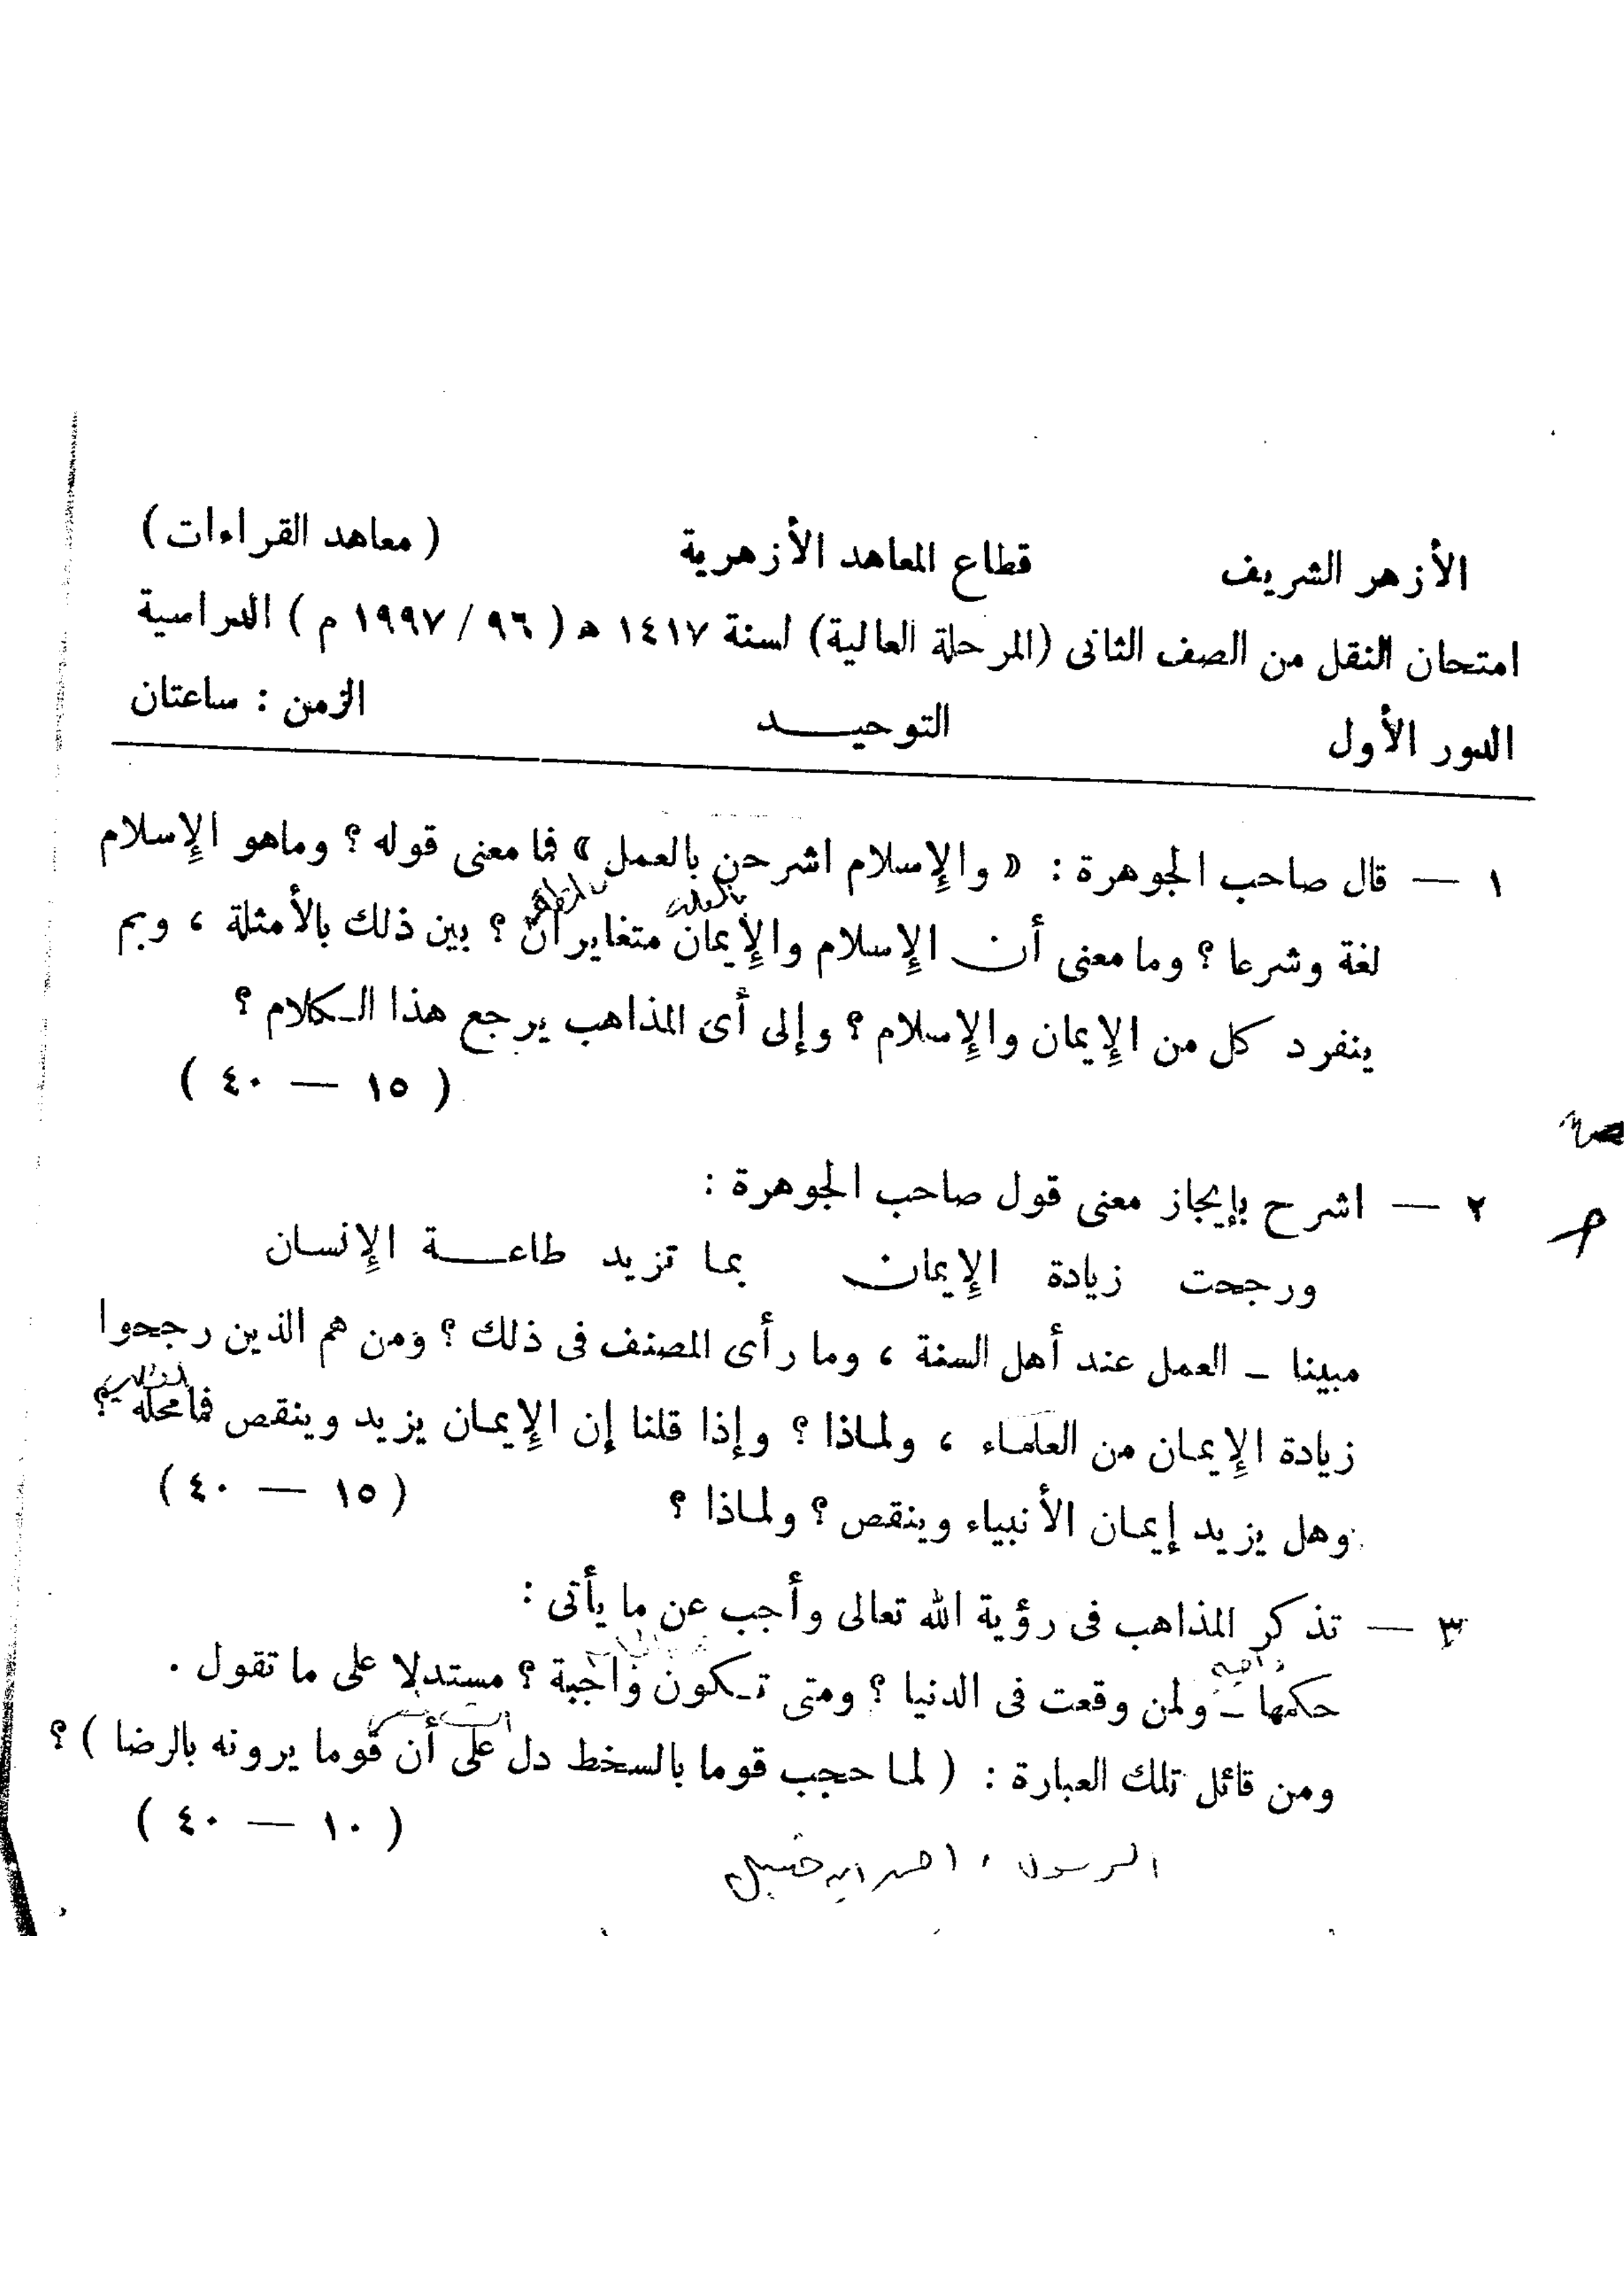 الأزهر الشريف قطاع المعاهد الأزهرية ( معاهد القراءات )
امتحان النقل من الصف الثانى (المرحلة العالية) لسنة ١٤١٧ ه ( ٩٦ / ١٩٩٧ م ) الدراسية
الدور الأول التوحيــــد الزمن : ساعتان
١ — قال صاحب الجوهرة : « والإسلام اشرحن بالعمل » فما معنى قوله ؟ وماهو الإسلام
لغة وشرعا ؟ وما معنى أن الإسلام والإيمان متغايران ؟ بين ذلك بالأمثلة ، وبم
ينفرد كل من الإيمان والإسلام ؟ وإلى أى المذاهب يرجع هذا الكلام ؟
( ١٥ — ٤٠ )
٢ — اشرح بإيجاز معنى قول صاحب الجوهرة :
ورجحت زيادة الإيمان بما تزيد طاعــــة الإنسان
مبينا – العمل عند أهل السنة ، وما رأى المصنف فى ذلك ؟ ومن هم الذين رجحوا
زيادة الإيمان من العلماء ، ولماذا ؟ وإذا قلنا إن الإيمان يزيد وينقص فما محله ؟
وهل يزيد إيمان الأنبياء وينقص ؟ ولماذا ؟ ( ١٥ — ٤٠ )
٣ — تذكر المذاهب فى رؤية الله تعالى وأجب عن ما يأتى :
حكمها – ولمن وقعت فى الدنيا ؟ ومتى تكون واجبة ؟ مستدلا على ما تقول .
ومن قائل تلك العبارة : ( لما حجب قوما بالسخط دل على أن قوما يرونه بالرضا ) ؟
( ١٠ — ٤٠ )
الرسول ، احمد ابن حنبل